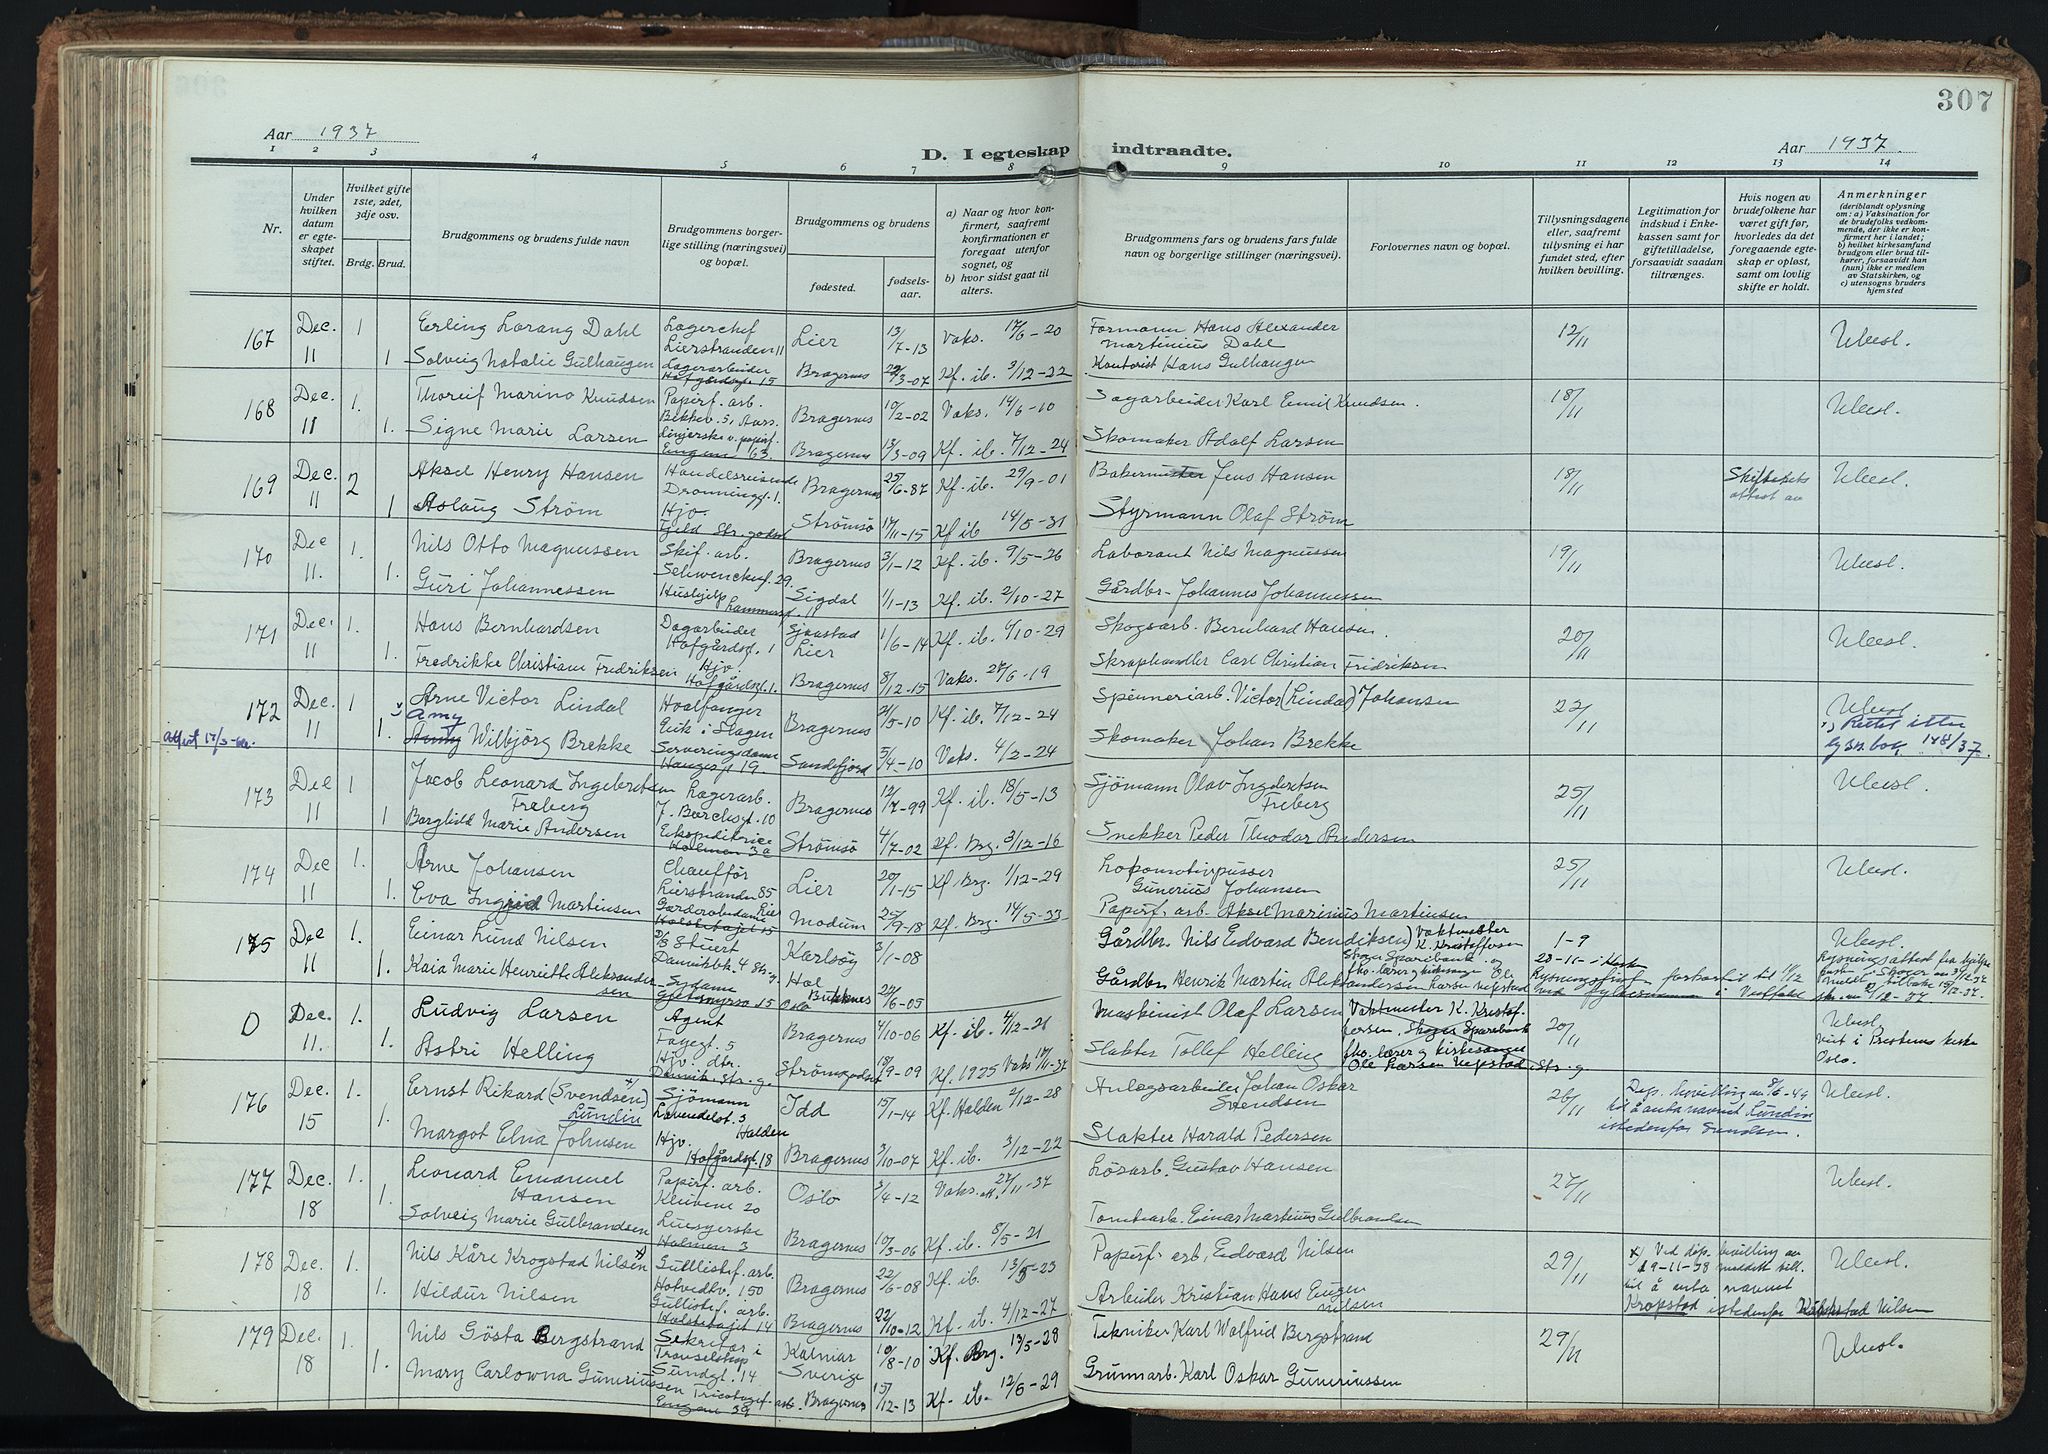 307
Aar 1937
D. I egteskap indtraadte.
Aar 1937.
1 2 3 4 5 6 7 8 9 10 11 12 13 14
Nr.
Under hvilken datum er egteskapet stiftet.
Hvilket gifte 1ste, 2det, 3dje osv.
Brdg. Brud.
Brudgommens og brudens fulde navn
Brudgommens borgerlige stilling (næringsvei) og bopæl.
Brudgommens og brudens
fødested.
fødselsaar.
a) Naar og hvor konfirmert, saafremt konfirmationen er foregaat utenfor sognet, og
b) hvor sidst gaat til alters.
Brudgommens fars og brudens fars fulde navn og borgerlige stillinger (næringsvei).
Forlovernes navn og bopæl.
Tillysningsdagene eller, saafremt tulysning ei har fundet sted, efter hvilken bevilling.
Legitimation for indskud i Enkekassen samt for giftetilladelse, forsaavidt saadan tiltrænges.
Hvis nogen av brudefolkene har været gift før, hvorledes da det foregaaende egteskap er opløst, samt om lovlig skifte er holdt.
Anmerkninger
(deriblandt oplysning om: a) Vaksination for de brudefolks vedkommende, der ikke er konfirmert her i landet; b) hvilket kirkesamfund brudgom eller brud tilhører, forsaavidt han (hun) ikke er medlem av Statskirken, og c) utensogns bruders hjemsted
167 Dec. 11 1 Erling Lorang Dahl Lagerchef Lierstranden 11 Lier 13/7-13 Vaks. 17/6-20 Formann Hans Alexander Martinius Dahl 12/11 Uleesl.
1 Solveig Natalie Gulhaugen Lagerarbeider Hofgårdsg. 15 Bragernes 22/3-07 Kf. ib. 3/12-22 Kontorist Hans Gulhaugen
168 Dec. 11 1. Thoreif Marino Knudsen Papirf. arb. Bragernes 10/2-02 Vaks. 14/6-10 Sagarbeider Karl Emil Knudsen. 18/11 Uleesl.
1. Signe Marie Larsen Bragernes 13/3-09 Kf. ib. 7/12-24 Skomaker Adolf Larsen
169 Dec. 11 2 Aksel Henry Hansen Handelsreisende Dronningg. 1. Bragernes 25/6-87 Kf. ib. 29/9-01 Bakermester Jens Hansen 18/11 Uleesl.
1 Aslaug Strøm Hjv. Strømsø 17/11-15 Kf ib 14/5-31 Styrmann Olaf Strøm
170 Dec 11. 1. Nils Otto Magnussen Skif. arb. Schwenckeg. 29. Bragernes 3/1-12 Kf. ib. 9/5-26 Laborant Nils Magnussen 19/11 Uleesl.
1. Guri Johannessen Hushjelp Sigdal 1/1-13 Kf. ib. 2/10-27 Gårdbr. Johannes Johannessen
171 Dec. 11 1. Hans Bernhardsen Dagarbeider Hofgårdsg. 1 Sjaastad Lier 1/6-14 Kf. ib. 4/10-29 Skogsarb. Bernhard Hansen. 20/11 Uleesl.
1. Fredrikke Christiane Fredriksen Hjv. Hofgårdsg. 1. Bragernes 8/12-15 Vaks. 27/6-19 Skraphandler Carl Christian Fridriksen
172 Dec. 11 1 Arne Victor Lindal Hvalfanger Eik i Slagen Bragernes 21/5-10 Kf. ib. 7/12-24 Spinneriarb. Victor (Lindal) Johansen 22/11 Uleesl.
1. Amy Wilbjörg Brekke Serveringsdame Haugesg. 19. Sandefjord 5/4-10 Vaks. 4/2-24 Skomaker Johan Brekke
173 Dec 11 1 Jacob Leonard Ingebretsen Freberg Lagerarb. J. Borchsgt. 10 Bragernes 12/7-99 Kf. ib. 18/5-13 Sjömann Olav Ingebretsen Freberg 25/11 Uleesl.
1 Borghild Marie Andersen Ekspeditrice Holmen 3a Strømsø 4/7-02 Kf. Brg. 3/12-16 Snekker Peder Theodor Andersen
174 Dec 11 1. Arne Johansen Chauffør Lierstranden 85 Lier 20/1-15 Kf. Brg. 1/12-29 Lokomotivpusser Gunerius Johansen 25/11 Uleesl.
1. Eva Ingrid Martinsen Garderobedame Modum 25/9-18 Kf. Brg. 14/5-33 Papirf. arb. Aksel Marinius Martinsen
175 Dec 11 1. Einar Lund Nilsen Stuert Karlsøy 3/1-08 Gårdbr. Nils Edvard Bendiksen Vaktmester K. Kristoffersen Uleesl.
1. Kaia Marie Henriette Aleksandersen Sydame Hol 24/6-05 Gårdbr. Henrik Martin Aleksandersen
D Dec. 11. 1. Ludvig Larsen Agent Fayegt. 5 Bragernes 4/10-06 Kf. ib. 4/12-21 Maskinist Olaf Larsen Vaktmester K. Kristoffersen 20/11 Uleesl.
1. Astri Helling Hjv. Strømsgodset 18/9-09 Kf. 1925 Slakter Tollef Helling
176 Dec. 15 1. Ernst Rikard (Svendsen) Lundin Sjömann Lavendelst. 3 Halden Idd 15/1-14 Kf. Halden 2/12-28 Anlegsarbeider Johan Oskar Svendsen 26/11 Uleesl.
Margot Elna Johnsen Hjv. Hofgårdsg. 18 Bragernes 3/10-07 Kf. ib. 3/12-22 Slakter Harald Pedersen
177 Dec. 18 1. Leonard Emanuel Hansen Papirf. arb. Klevene 20 Oslo 3/4-12 Vaks. 27/11-37 Lösarb. Gustav Hansen 27/11 Uleesl.
1. Solveig Marie Gulbrandsen Holmen 3 Bragernes 10/3-06 Kf. ib. 8/5-21 Tomtearb. Einar Martinius Gulbrandsen
178 Dec. 18 1. Nils Kåre Krogstad Nilsen Gullistef. arb. Hotvedtv. 150 Bragernes 22/6-08 Kf. ib. 13/5-23 Papirf. arb. Edvard Nilsen 29/11 Uleesl.
1. Hildur Nilsen Gullistef. arb. Bragernes 22/10-12 Kf. ib. 4/12-27 Arbeider Kristian Hans Eugen Nilsen
179 Dec. 18 1. Nils Gösta Bergstrand Sekretær i Travselskap Sundgt. 14 Kalmar Sverige 10/8-10 Kf. Brg. 13/5-28 Tekniker Karl Walfrid Bergstrand 29/11 Uleesl.
1. Mary Carlowna Gunerius­sen Bragernes 15/12-13 Kf. ib. 12/6-29 Grunnarb. Karl Oskar Gunerius­sen